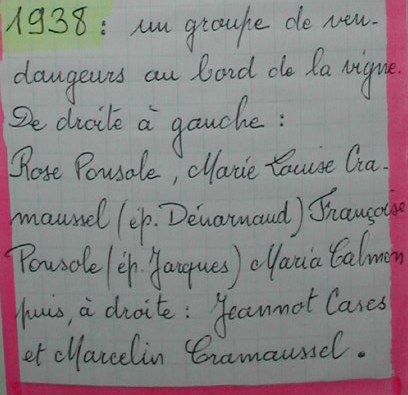 1938 : un groupe de ven-
dangeurs au bord de la vigne.
De droite à gauche :
Rose Pousole, Marie Louise Cra-
maussel (ép. Dénarnaud) Françoise
Pousole (ép. Jarques) Maria Calmon
puis, à droite : Jeannot Cases
et Marcelin Cramaussel.